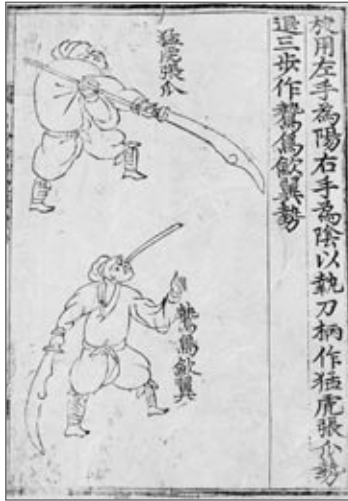 旋用左手為陽右手為陰以執刀柄作猛虎張爪勢
退三步作鷙鳥歛翼勢
猛虎張爪
鷙鳥歛翼